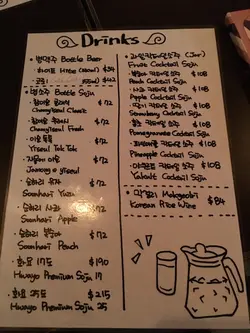 Drinks
• 병맥주 Bottle Beer
$42
• 병소주 Bottle Soju
• 참이슬 클래식 $72
Chamyiseul Classic
• 참이슬 후레쉬 $72
Chamyiseul Fresh
• 이슬톡톡 $72
Yiseul Tok Tok
• 자몽에이슬 $72
Jamong e yiseul
• 순하리 유자 $72
Soonhari Yuzu
• 순하리 사과 $72
Soonhari Apple
• 순하리 복숭아 $72
Soonhari Peach
• 화요 17도 $190
Hwayo Premium Soju 17
• 화요 25도 $215
Hwayo Premium Soju 25
• 과일칵테일소주 (Jar)
Fruit Cocktail Soju
• 칵테일소주 $108
Peach Cocktail Soju
• 사과 칵테일소주 $108
Apple Cocktail Soju
• 딸기 칵테일소주 $108
Strawberry Cocktail Soju
• 석류 칵테일소주 $108
Pomegranate Cocktail Soju
• 파인애플 칵테일소주 $108
Pineapple Cocktail Soju
• 칵테일소주 $108
Yakult Cocktail Soju
• 막걸리 Makgeolli
Korean Rice Wine $84